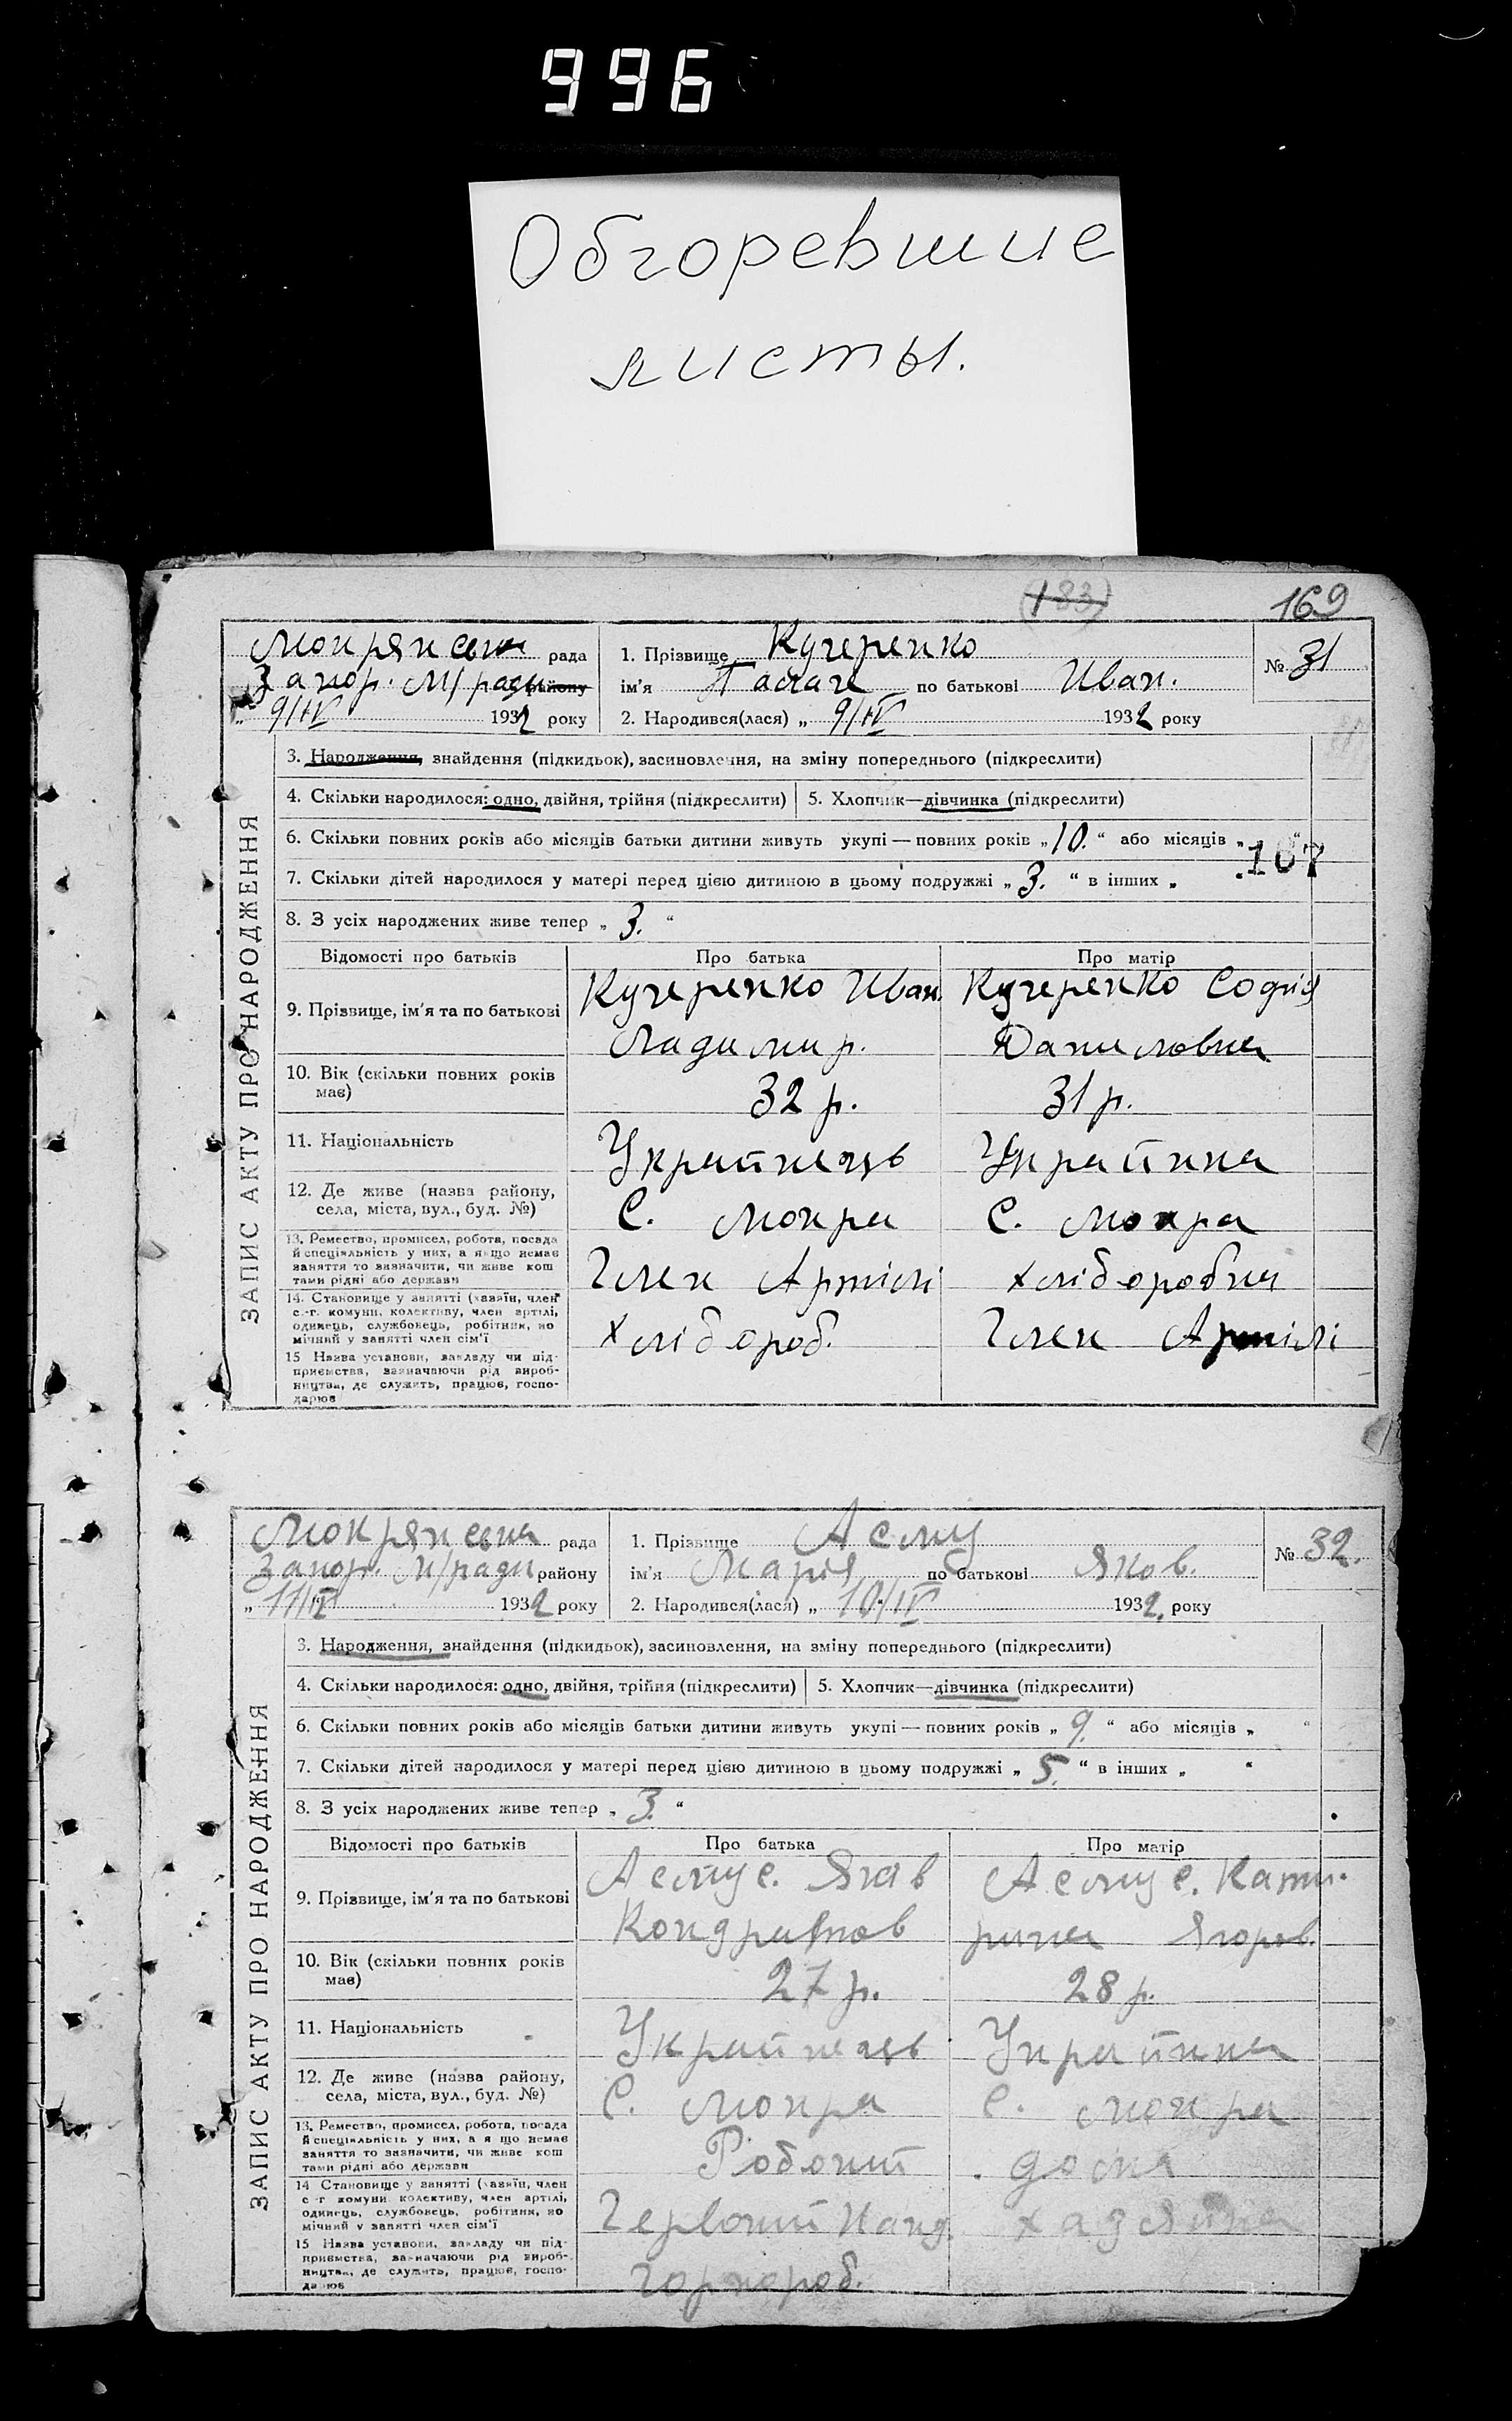 996
Обгоревшие
листы.
(183)
169
Мокрянська рада
Запор. М/ради району
„ 9/IV 1932 року
1. Прізвище Кучеренко
ім'я по батькові Иван.
2. Народився(лася) „ 9/IV 1932 року
№ 31
ЗАПИС АКТУ ПРО НАРОДЖЕННЯ
3. Народження, знайдення (підкидьок), засиновлення, на зміну попереднього (підкреслити)
4. Скільки народилося: одно, двійня, трійня (підкреслити) 5. Хлопчик—дівчинка (підкреслити)
6. Скільки повних років або місяців батьки дитини живуть укупі — повних років „ 10. “ або місяців „ “
167
7. Скільки дітей народилося у матері перед цією дитиною в цьому подружжі „ 3. “ в інших „
8. З усіх народжених живе тепер „ 3. “
Відомості про батьків Про батька Про матір
9. Прізвище, ім'я та по батькові Кучеренко Иван. Кучеренко Софія
Ладимир. Даниловна
10. Вік (скільки повних років має) 32 р. 31 р.
11. Національність Українець Українка
12. Де живе (назва району, села, міста, вул., буд. №) С. Мокра С. Мокра
13. Ремество, промисел, робота, посада й спеціяльність у них, а якщо немає заняття то зазначити, чи живе коштами рідні або держави Член Артілі
14. Становище у занятті (хазяїн, член с.-г. комуни, колективу, член артілі, одинець, службовець, робітник, помічний у занятті член сім'ї хлібороб. Член Артілі
15 Назва установи, закладу чи підприємства, зазначаючи рід виробництва, де служить, працює, господарює
Мокрянська рада
Запор. М/ради району
„ 11/IV 1932 року
1. Прізвище Асму
ім'я Марія по батькові Яков.
2. Народився(лася) „ 10/IV 1932. року
№ 32.
ЗАПИС АКТУ ПРО НАРОДЖЕННЯ
3. Народження, знайдення (підкидьок), засиновлення, на зміну попереднього (підкреслити)
4. Скільки народилося: одно, двійня, трійня (підкреслити) 5. Хлопчик—дівчинка (підкреслити)
6. Скільки повних років або місяців батьки дитини живуть укупі — повних років „ 9. “ або місяців „ “
7. Скільки дітей народилося у матері перед цією дитиною в цьому подружжі „ 5. “ в інших „ “
8. З усіх народжених живе тепер „ 3. “
Відомості про батьків Про батька Про матір
9. Прізвище, ім'я та по батькові Асмус. Асмус. Кати-
Кондратов рина Ягоров.
10. Вік (скільки повних років має) 27 р. 28 р.
11. Національність Українець Українка
12. Де живе (назва району, села, міста, вул., буд. №) С. Мокра С. Мокра
13. Ремество, промисел, робота, посада й спеціяльність у них, а якщо немає заняття то зазначити, чи живе коштами рідні або держави
14 Становище у занятті (хазяїн, член с.-г. комуни, колективу, член артілі, одинець, службовець, робітник, помічний у занятті член сім'ї
15 Назва установи, закладу чи підприємства, зазначаючи рід виробництва, де служить, працює, господарює